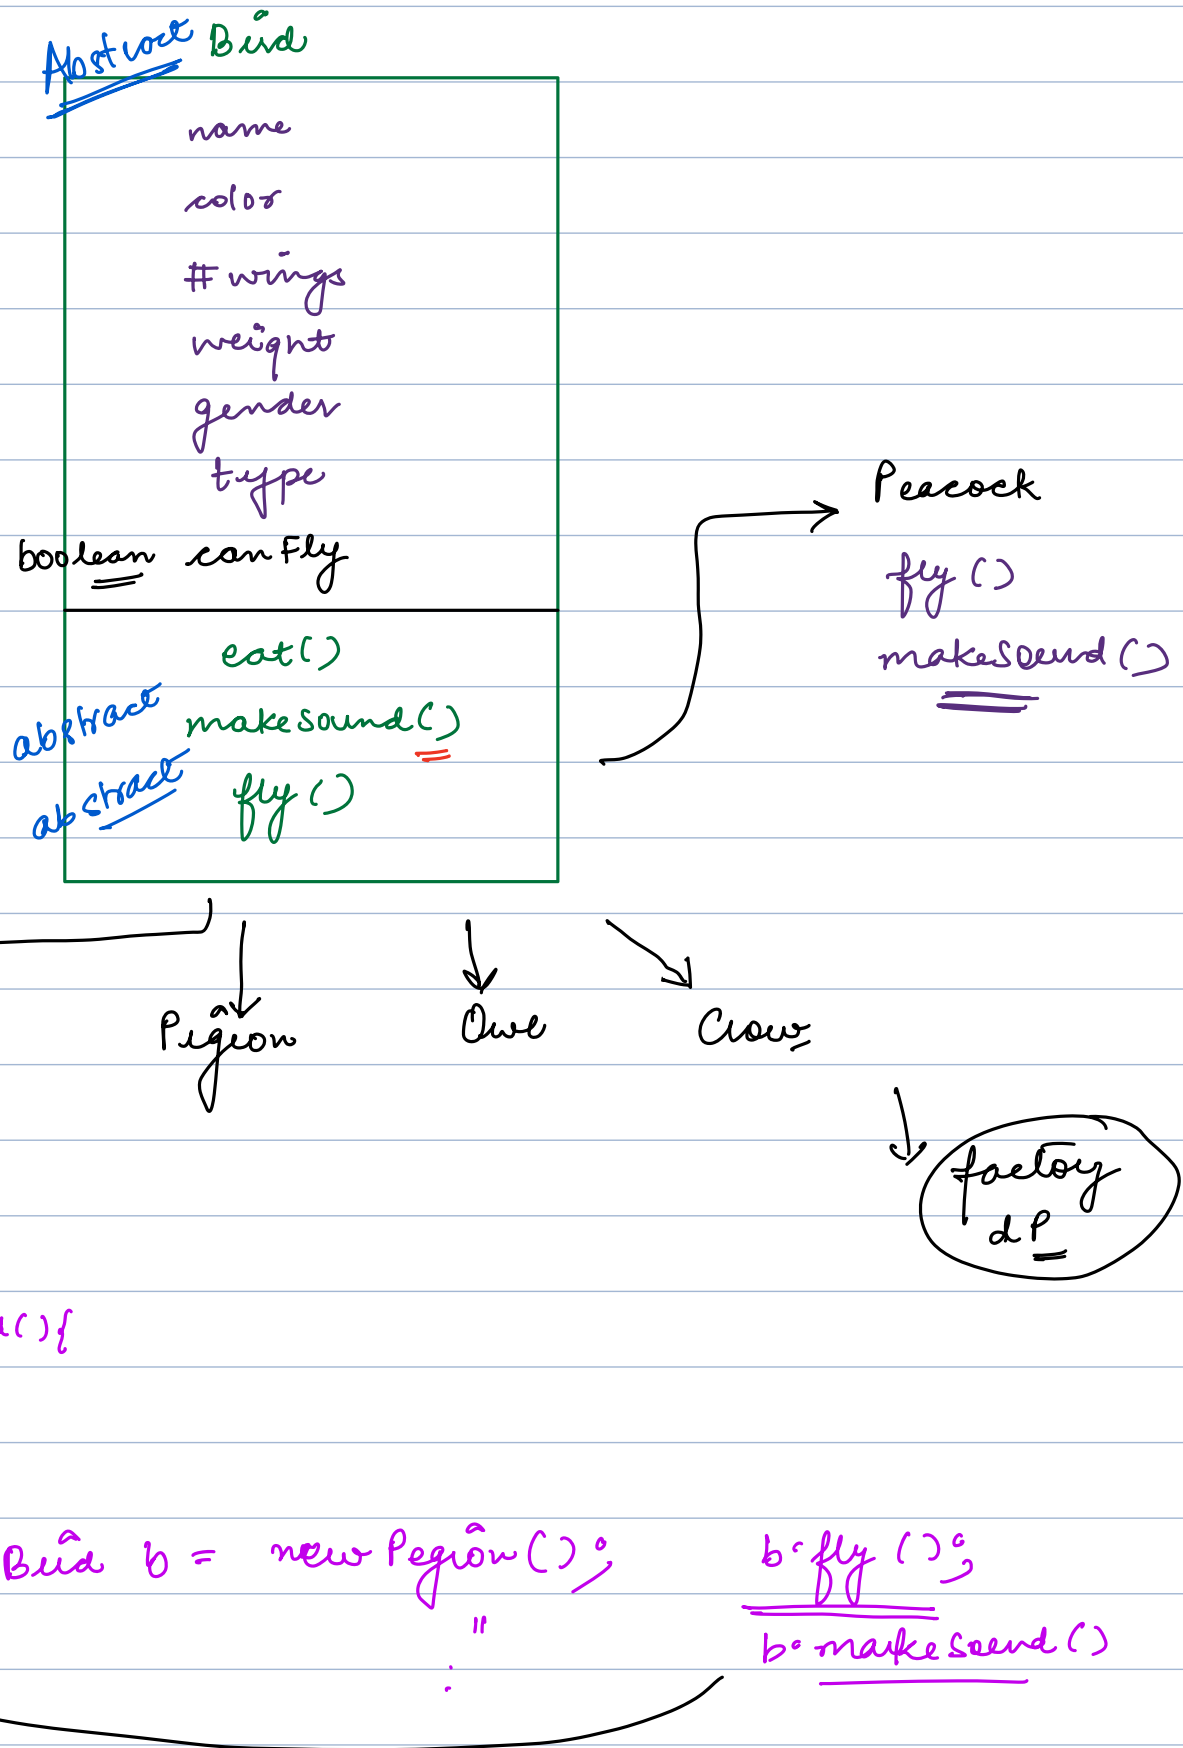 Abstract Bird
name
color
# wings
weight
gender
type
boolean canFly
eat()
abstract makesound()
abstract fly()
Peacock
fly()
makesound()
Pigeon
Owl
Crow
factory
dP
(){
Bird b = new Pegion();
"
:
b.fly();
b.makesound()